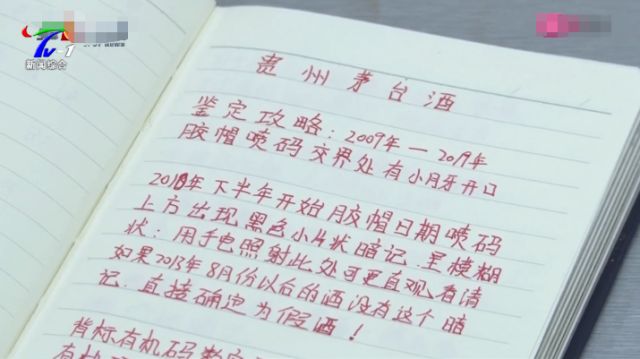 TV-1
新闻综合
贵州茅台酒
鉴定攻略：2009年—2019年
胶帽喷码交界处有小月牙开口
2010年下半年开始胶帽日期喷码
上方出现黑色小片状暗记呈模糊
状：用手电照射此处可更直观看清
如果2013年8月份以后的酒没有这个暗
记.直接确边为假酒！
背标有机码数字